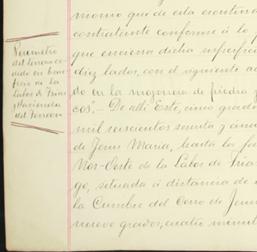 Perímetro
del terreno ce-
dido en bene-
ficio de la
Labor de Trias
y Hacienda
del Torreon
mismo que de esta escritura
contratante conforme á lo
que encierra dicha superfici
diez lados, con el siguiente
do en la mojonera de piedra y
cos".— De allí Este, cinco grado
mil seiscientos
de Jesus María, hasta la
Nor-Oeste de la Labor de Trias
go, situada á distancia de
la Cumbre del Cerro de Jesu
nueve grados, cuatro minut